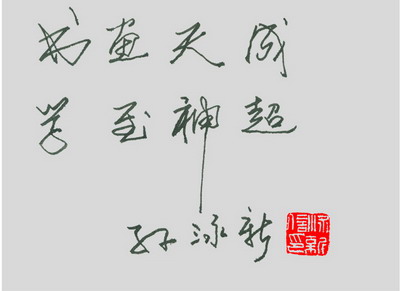 书画天成
学至神超
孙泳新